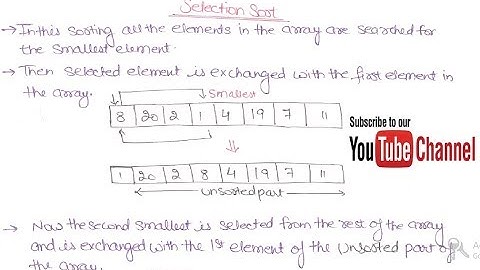 Selection Sort
→ In this sorting all the elements in the array are searched for
the smallest element.
→ Then selected element is exchanged with the first element in
the array.
Smallest
8 20 2 1 4 19 7 11
Subscribe to our
YouTube Channel
1 20 2 8 4 19 7 11
unsorted part
→ Now the second smallest is selected from the rest of the array
and is exchanged with the 1st element of the unsorted part of
the array.